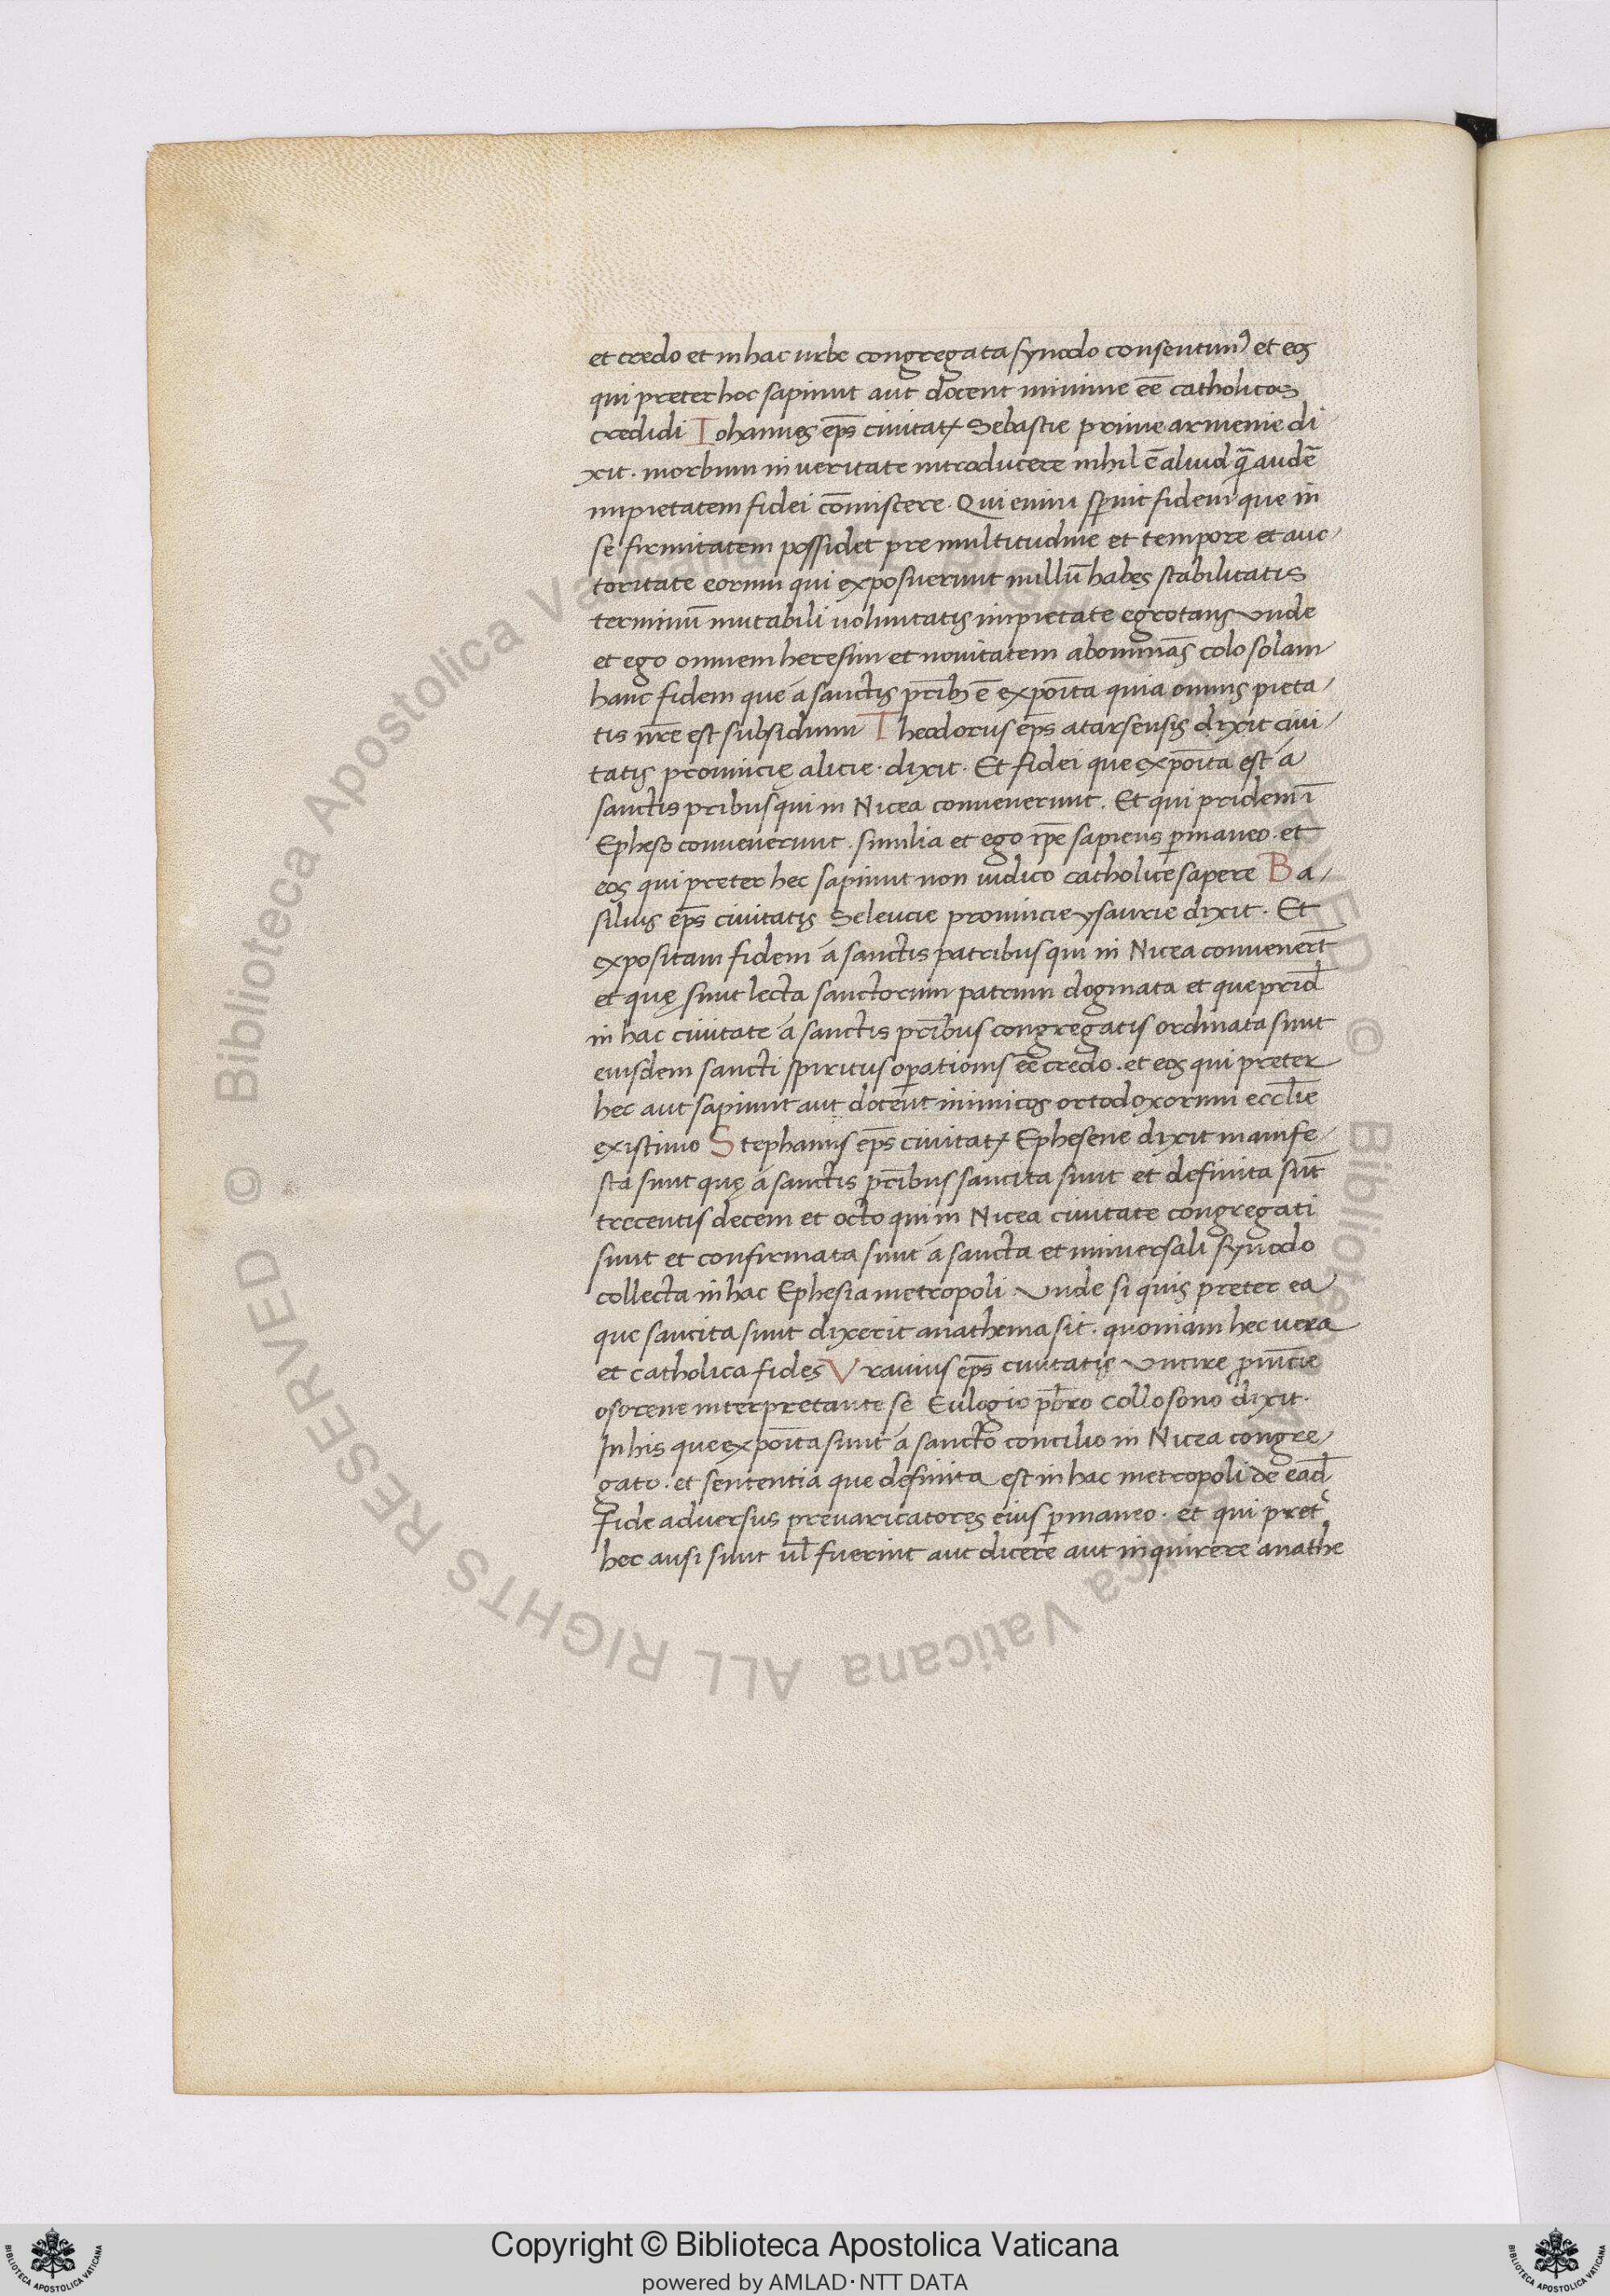 et credo et in hac urbe congregata synodo consentimꝰ et eos
qui preter hoc sapiunt aut docent minime eē catholicos
credidi Iohannes ep̄s civitatꝭ Sebastie prime armenie di
xit. morbum in veritate introducere nihil ē aliud q̄ audē
impietatem fidei cōmiscere. Qui enim sp̄nit fidem que in
se firmitatem possidet pre multitudine et tempore et auc
toritate eorum qui exposuerunt nullū habes stabilitatis
terminū mutabili voluntatis impietate egrotans unde
et ego omnem heresim et novitatem abominās colo solam
hanc fidem que á sanctis pr̄ibꝫ ē expoīta quia omnis pieta
tis nr̄e est subsidium Theodorus ep̄s atarsensis dixit civi
tatis provincię alicie. dixit. Et fidei que expoīta est á
sanctis pribus qui in Nicea convenerunt. Et qui pridem ī
Epheso convenerunt. similia et ego ip̄e sapiens ꝑmaneo. et
eos qui preter hec sapiunt non iudico catholice sapere Ba
silius ep̄s civitatis Seleucie provincie ysaurie dixit. Et
expositam fidem á sanctis patribus qui in Nicea convenert̄
et quę sunt lecta sanctorum patrum dogmata et que prid̄
in hac civitate á sanctis pr̄ibus congregatis ordinata sunt
eiusdem sancti spiritus oꝑationis eē credo. et eos qui preter
hec aut sapiunt aut docent inimicos ortodoxorum eccl̄ie
existimo Stephanus ep̄s civitatꝭ Ephesene dixit manife
sta sunt quę á sanctis pr̄ibus sancita sunt et definita sūt
trecentis decem et octo qui in Nicea civitate congregati
sunt et confirmata sunt á sancta et universali synodo
collecta in hac Ephesia metropoli Unde si quis preter ea
que sancita sunt dixerit anathema sit. quoniam hec vera
et catholica fides Uranius ep̄s civitatis Untire ꝓvincie
osorene interpretante se Eulogio pb̄ro collosono dixit.
In his que expoīta sunt á sancto concilio in Nicea congre
gato. et sententia que definita est in hac metropoli de ead̄
fide adversus prevaricatores eius ꝑmaneo. et qui pret̉
hec ausi sunt ul̄ fuerint aut dicere aut inquirere anathe
© Biblioteca Apostolica Vaticana ALL RIGHTS RESERVED
© Biblioteca Apostolica Vaticana ALL RIGHTS RESERVED
Copyright © Biblioteca Apostolica Vaticana
powered by AMLAD·NTT DATA
BIBLIOTECA APOSTOLICA VATICANA
BIBLIOTECA APOSTOLICA VATICANA